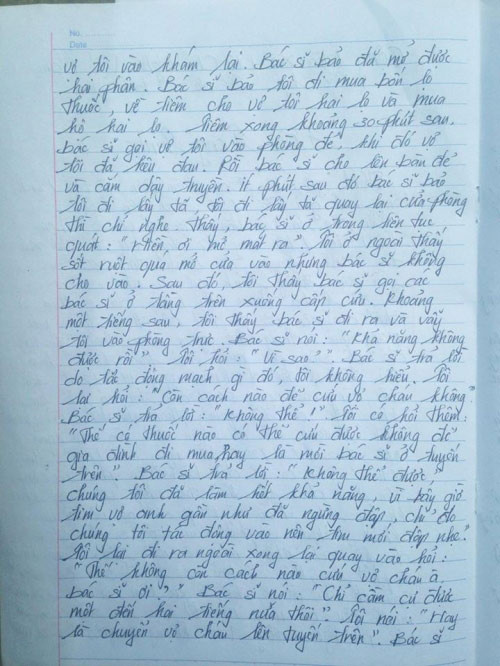 No.
Date
vợ tôi vào khám lại. Bác sĩ bảo đã mở được
hai phân. Bác sĩ bảo tôi đi mua bốn lọ
thuốc, về tiêm cho vợ tôi hai lọ và mua
hộ hai lọ. Tiêm xong khoảng 30 phút sau.
bác sĩ gọi vợ tôi vào phòng đẻ, khi đó vợ
tôi đã kêu đau. Rồi bác sĩ cho lên bàn đẻ
và cắm dây truyền. ít phút sau đó bác sĩ bảo
tôi đi lấy tã, tôi đi lấy tã quay lại cửa phòng
thì chỉ nghe thấy, bác sĩ ở trong liên tục
quát: " ơi mở mắt ra" Tôi ở ngoài thấy
sốt ruột quá mở cửa vào nhưng bác sĩ không
cho vào. Sau đó, tôi thấy bác sĩ gọi các
bác sĩ ở tầng trên xuống cấp cứu. Khoảng
một tiếng sau, tôi thấy bác sĩ đi ra và vẫy
tôi vào phòng trực. Bác sĩ nói: "Khả năng không
được rồi". Tôi hỏi: "Vì sao". Bác sĩ trả lời
do tắc động mạch gì đó, tôi không hiểu. Tôi
lại hỏi: "Còn cách nào để cứu vợ cháu không
Bác sĩ trả lời: "Không thể!" Tôi có hỏi thêm:
"Thế có thuốc nào có thể cứu được không để
gia đình đi mua, hay là mời bác sĩ ở tuyến
trên". Bác sĩ trả lời: "Không thể được,
chúng tôi đã làm hết khả năng, vì bây giờ
tim vợ anh gần như đã ngừng đập, chỉ do
chúng tôi tác động vào nên tim mới đập nhẹ.
Tôi lại đi ra ngoài xong lại quay vào hỏi:
"Thế không còn cách nào cứu vợ cháu à
bác sĩ ơi?" Bác sĩ nói: "Chỉ cầm cự được
một đến hai tiếng nữa thôi". Tôi nói: "Hay
là chuyển vợ cháu lên tuyến trên". Bác sĩ